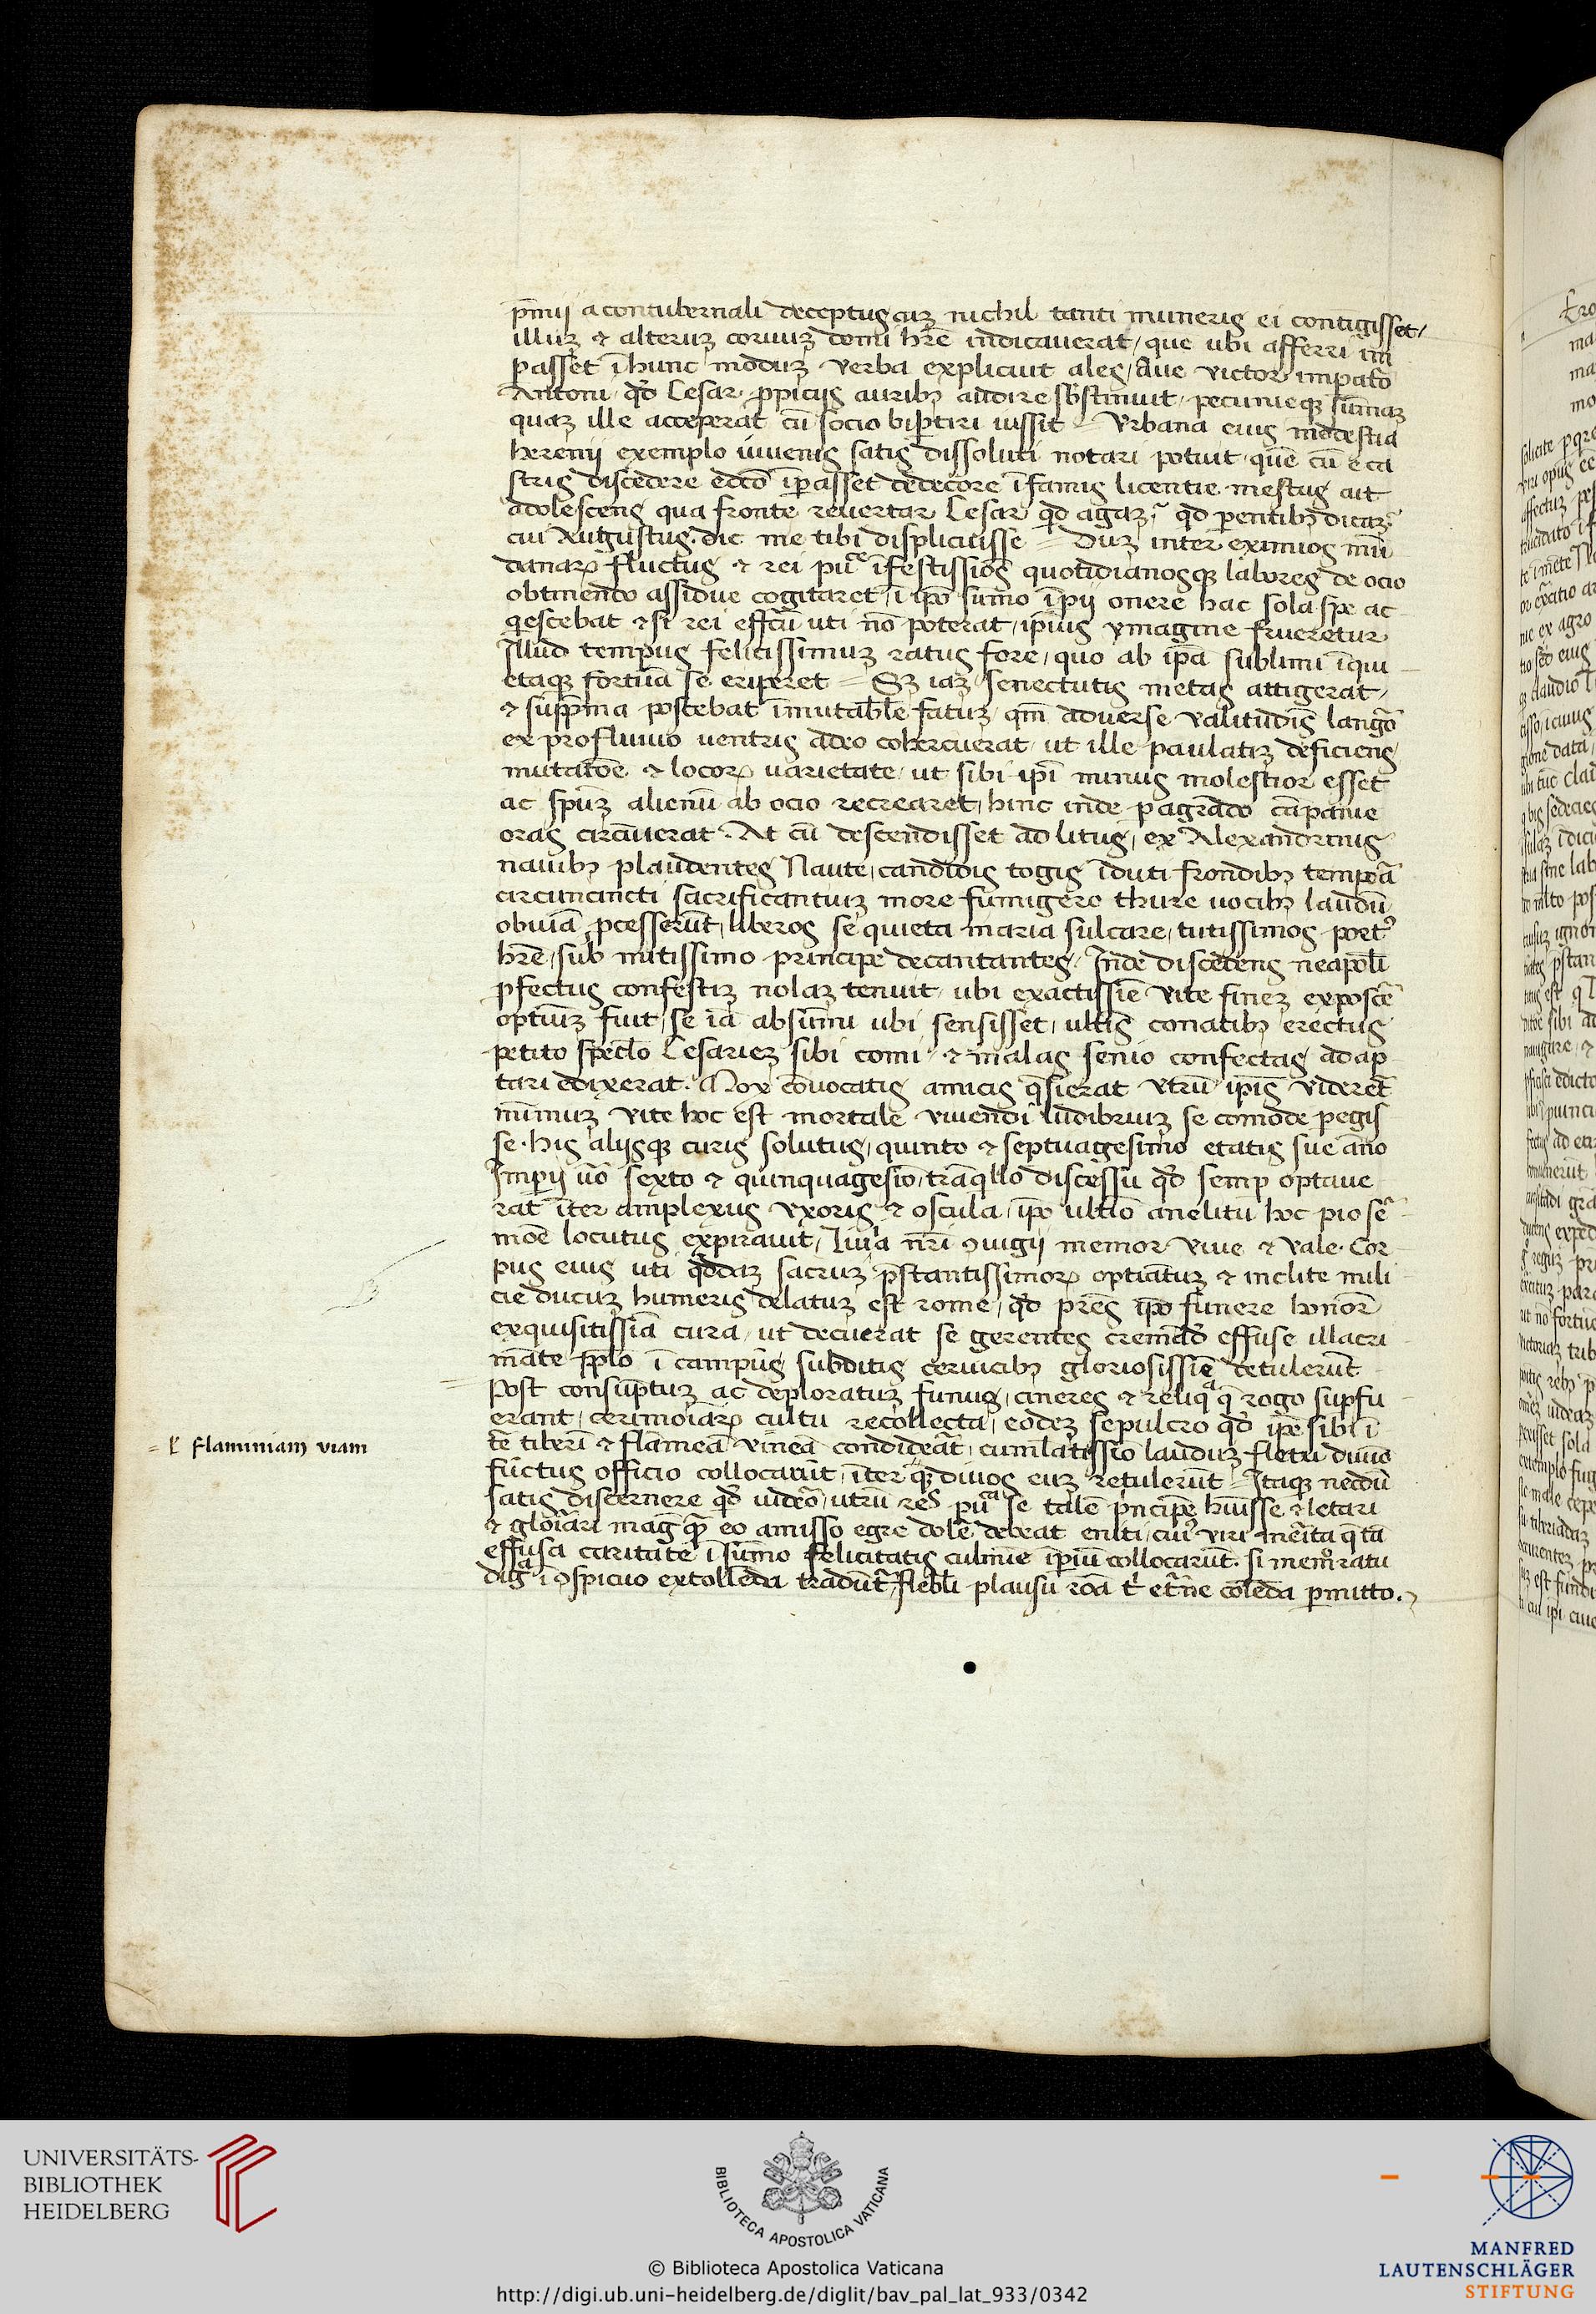 p̄mij a contubernali deceptus cuȝ nichil tanti muneris ei contigisset /
illuȝ ⁊ alteruȝ coruuȝ domi hr̄e indicauerat / que ubi afferri im
passet ī hunc moduȝ verba explicuit ales / Aue victor impato
Antoni / qd̄ Cesar ꝓpicijs auribꝫ audire sb̄stinuit / pecunieqꝫ sum̄aȝ
quaȝ ille acceperat cū socio bipartiri iussit = Vrbana eius modestia
herenij exemplo iuuenis satis dissoluti notari potuit / quē cū e ca
stris discedere edcō ip̄asset dedecore īfamis licentie mestus ait
adolescens qua fronte reuertar Cesar qd̄ agaȝ / qd̄ parentibꝫ dicaȝ
cui Augustus. dic me tibi displicuisse = Duȝ inter eximios mū
danaꝝ fluctus ⁊ rei pu͆ īfestissiōs quotidianosqꝫ labores de ocio
obtinendo assidue cogitaret / ī ip̄o sum̄o īpij onere hac sola spe ac
qescebat ⁊ si rei effcū uti nō poterat / ipīus ymagine frueretur
Illud tempus felicissimuȝ ratus fore / quo ab ip̄a sublimi īqui
etaqꝫ fortuā se eriperet = Sȝ iaȝ senectutis metas attigerat /
⁊ sup̄ma poscebat īmutabl̄e fatuȝ / qm̄ aduerse valitudīs langō
ex profluuio uentris adeo cohercuerat / ut ille paulatiȝ deficiens /
mutatōe ⁊ locoꝝ uarietate / ut sibi ipī minus molestior esset
ac spūȝ alienū ab ocio recrearet / hinc inde pagrādo cāpanie
oras circūierat. At cū descendisset ad litus / ex Alexandrinis
nauibꝫ plaudentes Naute / candidis togis īduti frondibꝫ tempoa͆
circuncincti sacrificantiuȝ more fumigero thure uocibꝫ laudū
obuiā ꝓcesserūt / liberos se quieta maria sulcare / tutissimos portꝰ
hr̄e / sub mitissimo principe decantantes / Inde discedens neapolī
ꝓfectus confestiȝ nolaȝ tenuit / ubi exactissīe vite fineȝ exposcē
optiūȝ fuit / se iā absūmi ubi sensisset / ultīs conatibꝫ erectus
petito specl̄o Cesarieȝ sibi comi / ⁊ malas senio confectas adap
tari edixerat. Mox cōuocatis amicis qsierat vtrū ipīs viderēt
mimuȝ vite hoc est mortale viuendi ludibriuȝ se comode pegis
se. his alijsqꝫ curis solutus / quinto ⁊ septuagesimo etatis sue āno
Imperij uō sexto ⁊ quinquagesiō / trāqllo discessu qd̄ semp optaue
rat īter amplexus vxoris ⁊ oscula / ip̄o ultīo anelitu hoc pio sē
mōe locutus expirauit / Liuia nr̄i ꝯiugij memor viue ⁊ vale. Cor
pus eius uti qd̄daȝ sacruȝ p̄stantissimoꝝ optiātuȝ ⁊ inclite mili
cie ducuȝ humeris delatuȝ est rome / qd̄ prēs ip̄o funere honorē
exquisitissīa cura / ut decuerat se gerentes cremād̄ effuse illacri
māte pp̄lo ī campus subditis ceruicibꝫ gloriosissīe detulerūt
Post consūptuȝ ac deploratuȝ funus / cineres ⁊ reliqa͆ q̄ rogo supfu
erant / cerimoīaꝝ cultu recollecta / eodeȝ sepulcro qd̄ ip̄e sibi ī
tē tiberī ⁊ flāmeā vineā condidea͆t / cumlatissīo lauduȝ fletu diuīo
fūctus officio collocarūt / īter qꝫ diuos euȝ retulerūt = Itaqꝫ nedū
satis discernere qd̄ uideō / utrū res pu͆ se talē p̄ncipē hūisse ⁊ letari
⁊ glorīari maḡ qꝫ eo amisso egre dolē debeat eniti / ciuꝰ viri merita q tā
effusa caritate ī sum̄o felicitatis culmīe īperiū collocarūt. si memoratu
dig͆ ī ꝯspicuo extollēda tradūt / flebli plausu rōā t͛ et̄ne colēda pmitto.
= l͛ flaminiam viam
UNIVERSITÄTS-
BIBLIOTHEK
HEIDELBERG
BIBLIOTECA APOSTOLICA VATICANA
© Biblioteca Apostolica Vaticana
http://digi.ub.uni-heidelberg.de/diglit/bav_pal_lat_933/0342
MANFRED
LAUTENSCHLÄGER
STIFTUNG